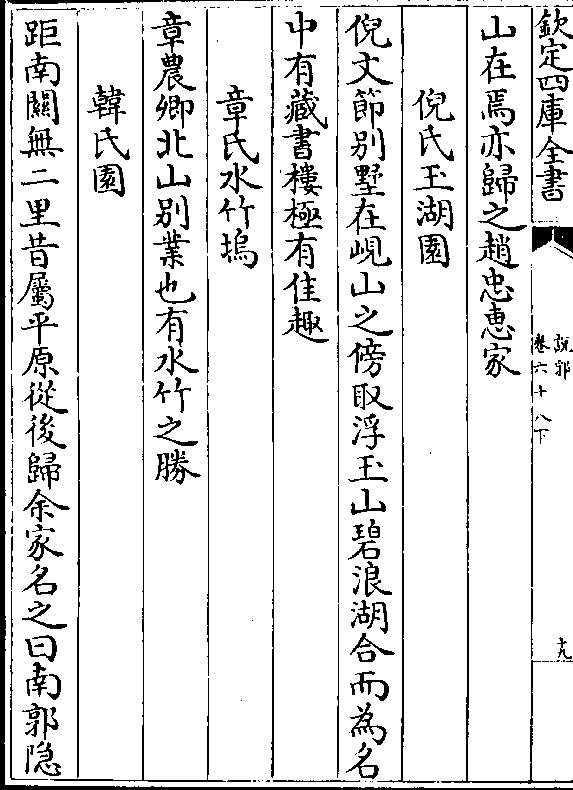 欽定四庫全書
説郛
卷六十八下
十九
山在焉亦歸之趙忠惠家
倪氏玉湖園
倪文節别墅在峴山之傍取浮玉山碧浪湖合而為名
中有藏書樓極有佳趣
章氏水竹塢
章農卿北山别業也有水竹之勝
韓氏園
距南關無二里昔屬平原從後歸余家名之曰南郭隐